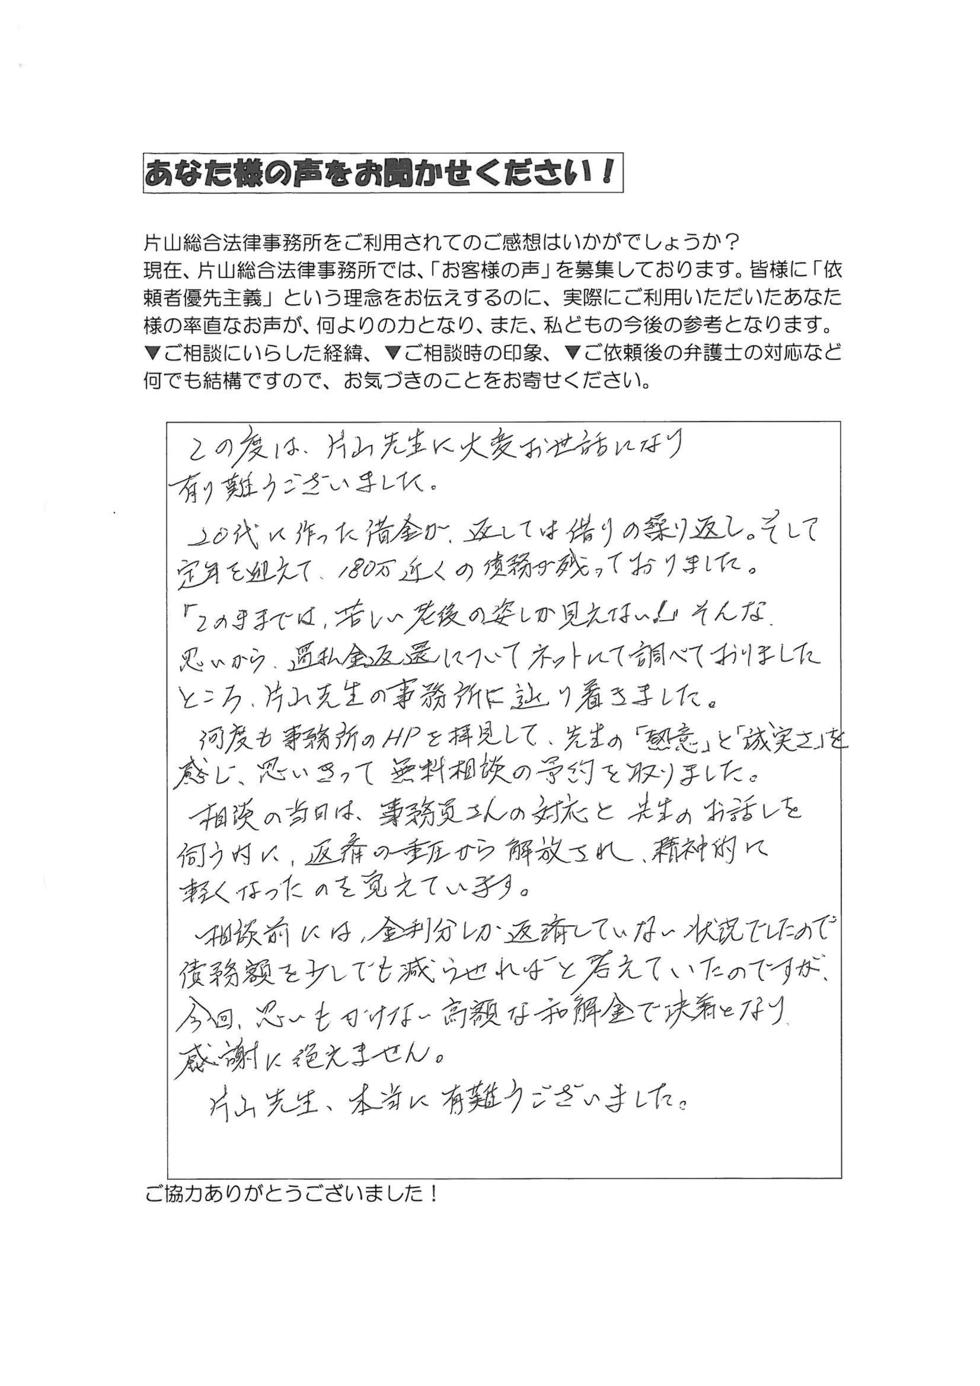 あなた様の声をお聞かせください！
片山総合法律事務所をご利用されてのご感想はいかがでしょうか？
現在、片山総合法律事務所では、「お客様の声」を募集しております。皆様に「依
頼者優先主義」という理念をお伝えするのに、実際にご利用いただいたあなた
様の率直なお声が、何よりの力となり、また、私どもの今後の参考となります。
▼ご相談にいらした経緯、▼ご相談時の印象、▼ご依頼後の弁護士の対応など
何でも結構ですので、お気づきのことをお寄せください。
この度は、片山先生に大変お世話になり
有り難うございました。
20代に作った借金が、返しては借りの繰り返し。そして
定年を迎えて、180万近くの債務が残っておりました。
『このままでは、苦しい老後の姿しか見えない!』そんな
思いから、過払金返還についてネットにて調べておりました
ところ、片山先生の事務所に辿り着きました。
何度も事務所のHPを拝見して、先生の「熱意」と「誠実さ」を
感じ、思いきって無料相談の予約を取りました。
相談の当日は、事務員さんの対応と先生のお話しを
伺う内に、返済の重圧から解放され、精神的に
軽くなったのを覚えています。
相談前には、金利分しか返済していない状況でしたので
債務額を少しでも減らせればと考えていたのですが、
今回、思いもかけない高額な和解金で決着となり
感謝に絶えません。
片山先生、本当に有難うございました。
ご協力ありがとうございました！